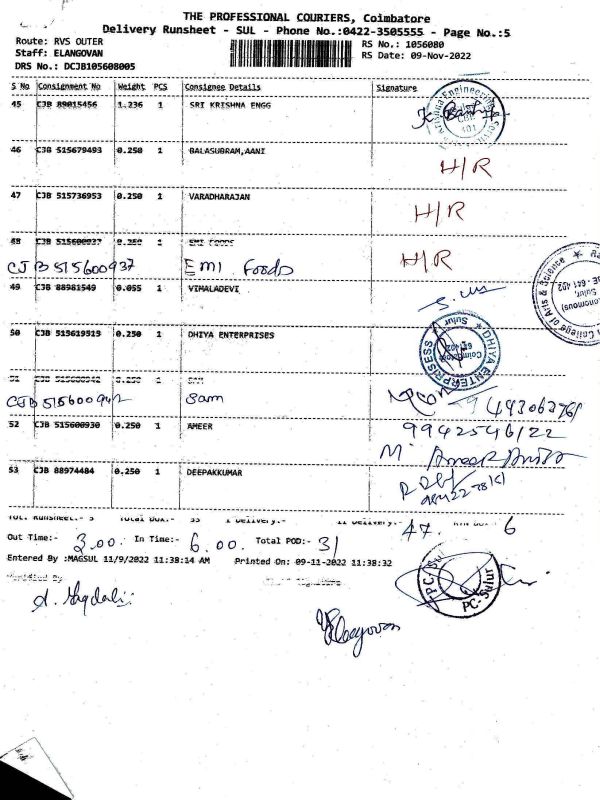 THE PROFESSIONAL COURIERS, Coimbatore
Delivery Runsheet - SUL - Phone No.:0422-3505555 - Page No.:5
Route: RVS OUTER
RS No.: 1056080
Staff: ELANGOVAN
RS Date: 09-Nov-2022
DRS No.: DCJB105608005
S No Consignment No Weight PCS Consignee Details Signature
45 CJB 89015456 1.236 1 SRI KRISHNA ENGG
46 CJB 515679493 0.250 1 BALASUBRAM,AANI H/R
47 CJB 515736953 0.250 1 VARADHARAJAN H/R
48 CJB 515600937 0.250 1 EMI FOODS H/R
CJB 515600937 EMI Foods
49 CJB 88981549 0.055 1 VIMALADEVI
50 CJB 515619519 0.250 1 DHIYA ENTERPRISES
DHIYA ENTERPRISESS
Sulur
51 CJB 515600942 0.250 1 SAM
CJB 515600942 Sam
52 CJB 515600930 0.250 1 AMEER 9942546122
53 CJB 88974484 0.250 1 DEEPAKKUMAR
47. 6
Out Time:- 3.00. In Time:- 6.00. Total POD:- 31
Entered By :MAGSUL 11/9/2022 11:38:14 AM Printed On: 09-11-2022 11:38:32
PC-Sulur